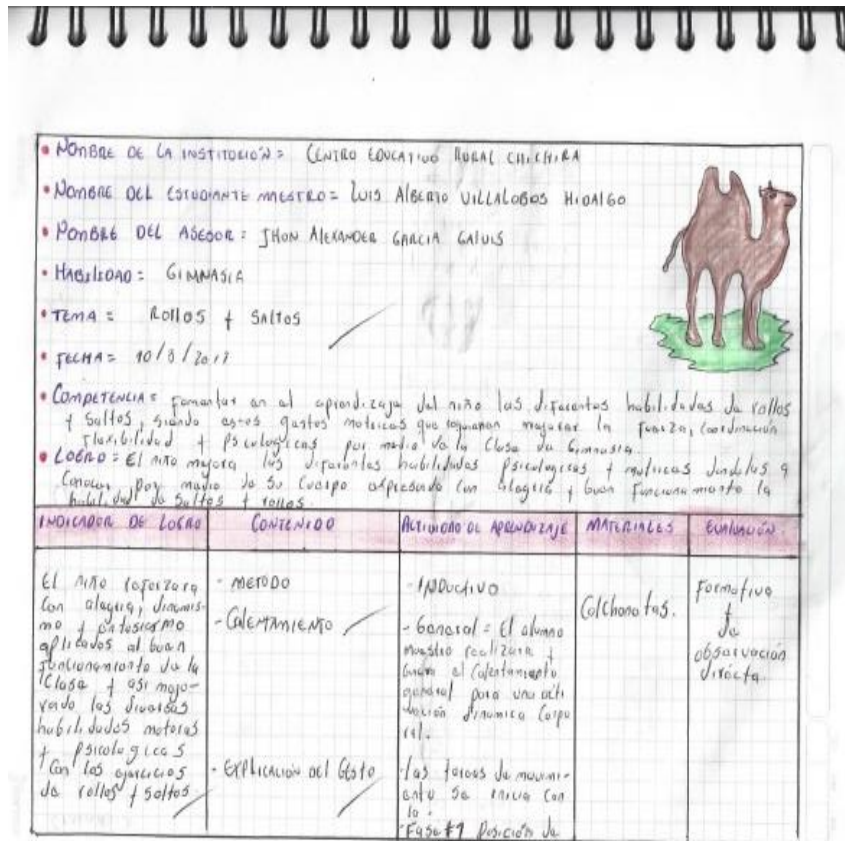 • NOMBRE DE LA INSTITUCIÓN = CENTRO EDUCATIVO RURAL CHICHIRA
• NOMBRE DEL ESTUDIANTE MAESTRO = LUIS ALBERTO VILLALOBOS HIDALGO
• NOMBRE DEL ASESOR = JHON ALEXANDER GARCIA GALVIS
• HABILIDAD = GIMNASIA
• TEMA = ROLLOS + SALTOS
• FECHA = 10/8/2018
• COMPETENCIA = Fomentar en el aprendizaje del niño las diferentes habilidades de rollos
+ saltos, siendo estos gestos motrices que logran mejorar la fuerza, coordinación
Flexibilidad + Psicologicas por medio de la clase de Gimnasia.
• LOGRO = El niño mejora las diferentes habilidades psicologicas + motrices dandolas a
conocer por medio de su cuerpo expresado con alegria + buen funcionamiento la
habilidad de saltos + rollos.
INDICADOR DE LOGRO CONTENIDO ACTIVIDAD DE APRENDIZAJE MATERIALES EVALUACIÓN
El niño reforzara
con alegria, dinamis-
mo + entosiasmo
aplicados al buen
funcionamiento de la
clase + asi mejo-
rando las diversas
habilidades motoras
+ psicologicas
con los ejercicios
de rollos + saltos.
- METODO
- CALENTAMIENTO
- EXPLICACIÓN DEL GESTO
- INDUCTIVO
- General = El alumno
maestro realizara +
guiara el calentamiento
general para una acti
vación dinamica corpo
ral.
- las tareas de movimi-
ento se inicia con
lo.
- Fase #1 Posición de
Colchonetas.
Formativa
+
de
observación
directa.